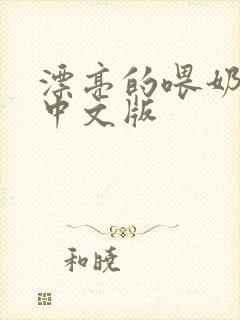 漂亮的喂奶
中文版
和晓